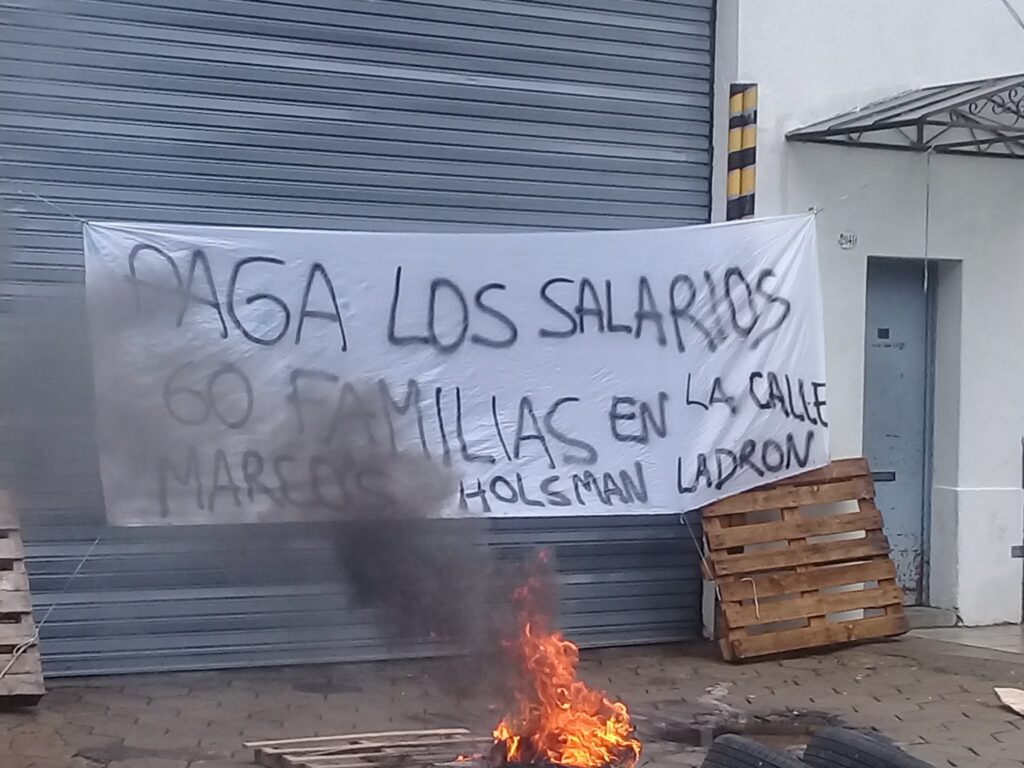 PAGA LOS SALARIOS
60 FAMILIAS EN LA CALLE
MARCOS HOLSMAN LADRON
2041